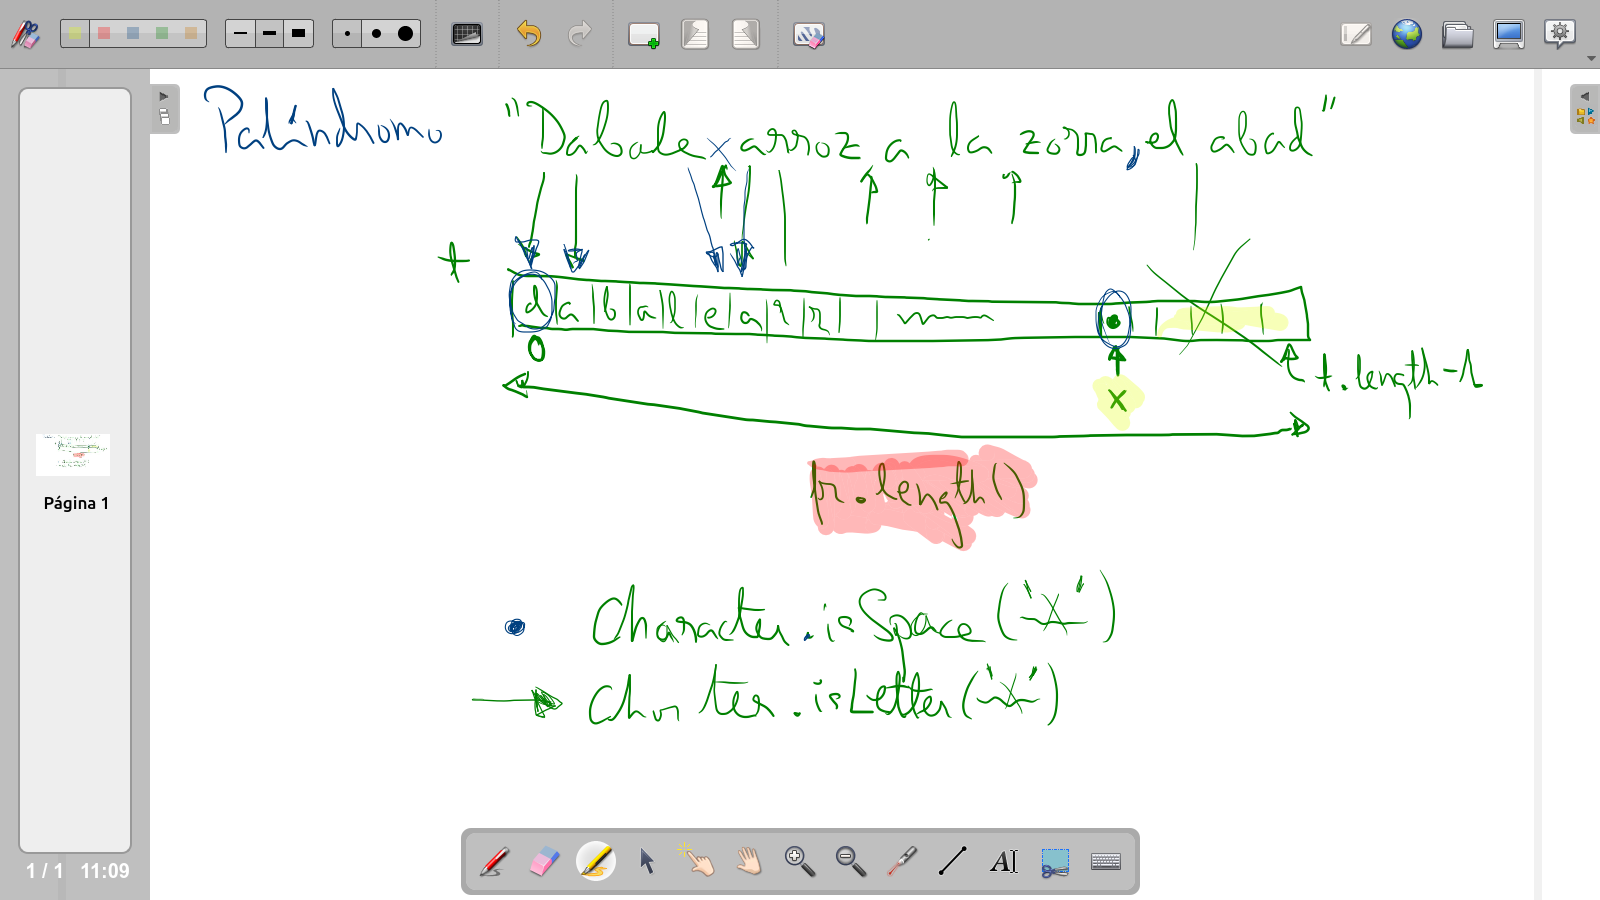 Palíndromo
"Dabale arroz a la zorra, el abad"
t
d a b a l e a r r
0
x
t.length-1
fr.length()
Character.isSpace('x')
isLetter('x')
Página 1
1 / 1 11:09